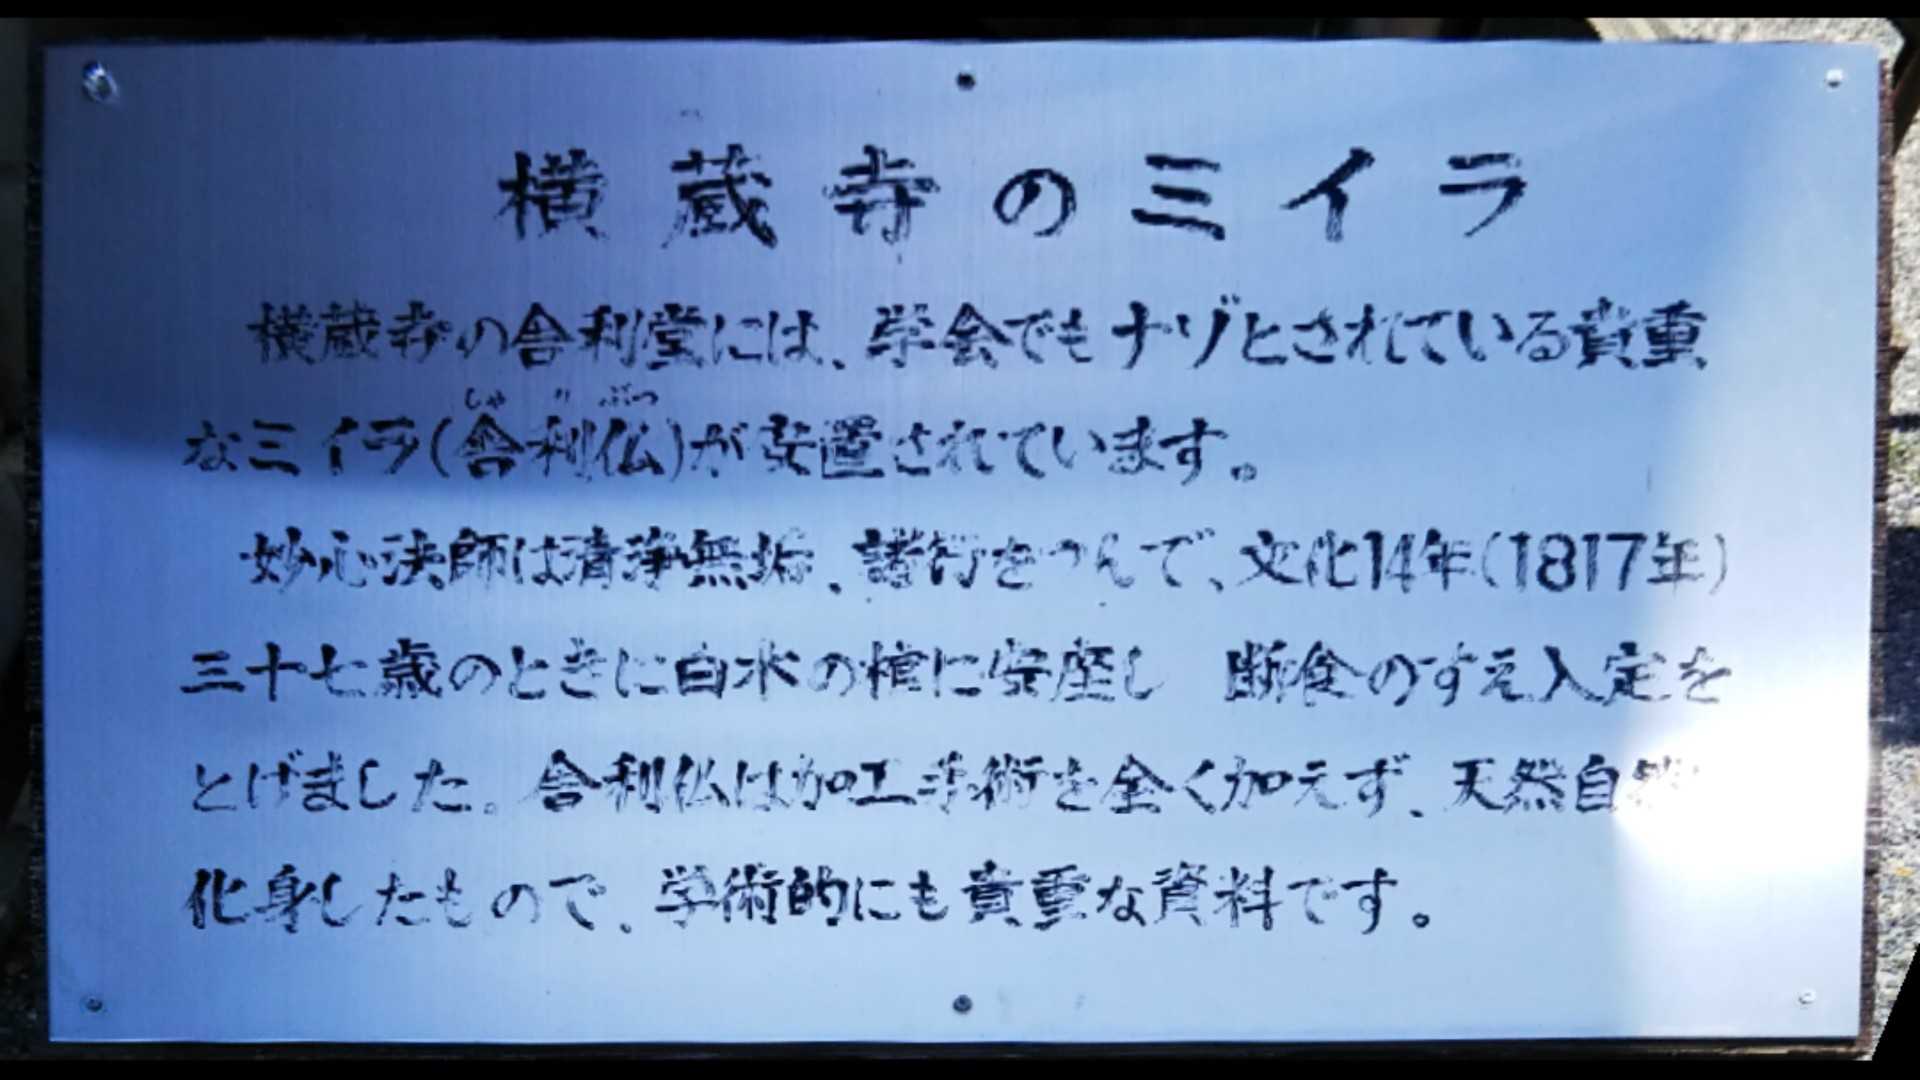 横蔵寺のミイラ
横蔵寺の舎利堂には、学会でもナゾとされている貴重
しゃ り ぶつ
なミイラ(舎利仏)が安置されています。
妙心法師は清浄無垢、諸行をつんで、文化14年(1817年)
三十七歳のときに白木の棺に安座し 断食のすえ入定を
とげました。舎利仏は加工手術を全く加えず、天然自然
化身したもので、学術的にも貴重な資料です。